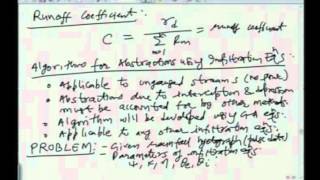 Runoff Coefficient:
C = r_d / Σ_{m=1} R_m = runoff coefficient
Algorithm for Abstractions using Infiltration Eqns:
• Applicable to ungauged streams
• Abstractions due to interception & depression must be accounted for by other methods.
• Algorithm will be developed using G-A eqns.
• Applicable to any other infiltration eqns.
PROBLEM:- Given rainfall hyetograph (pulse data)
Parameters of infiltration eqns.
ψ, K, η, θe, θi